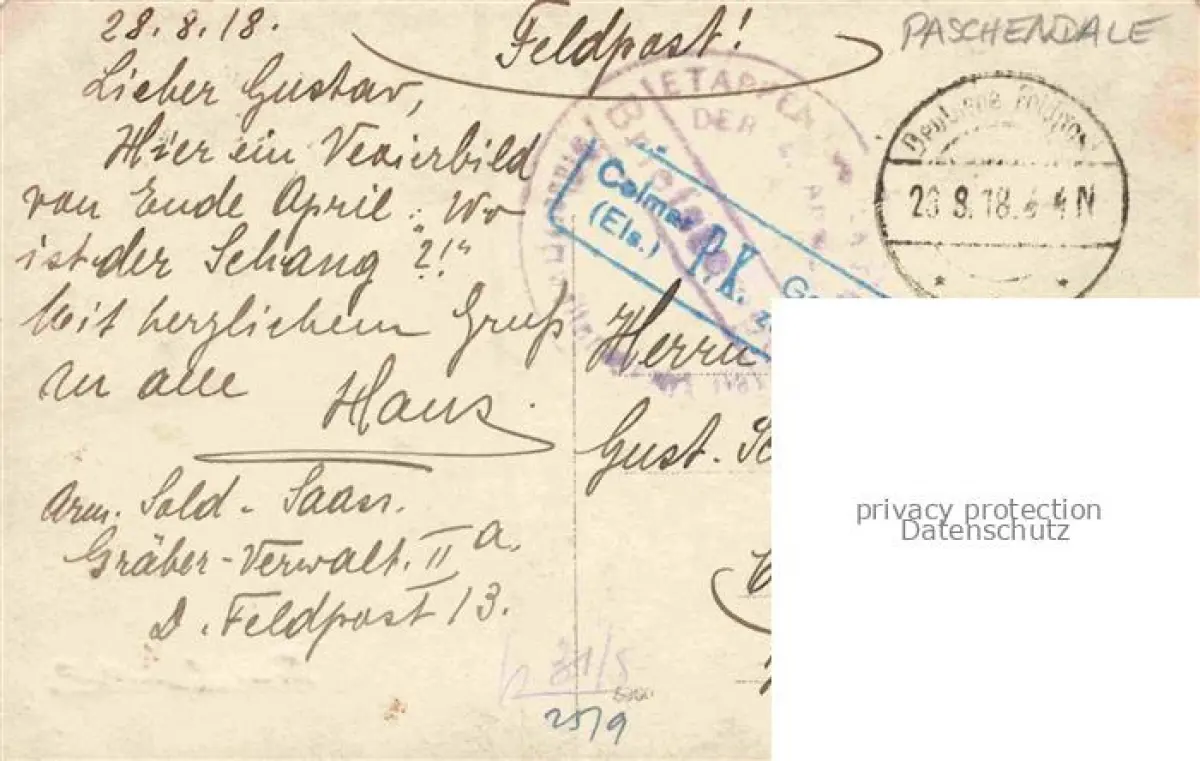 28.8.18.
Feldpost!
PASCHENDALE
Lieber Gustav,
Hier ein Vexierbild
von Ende April: "Wo
ist der Schang?!"
Mit herzlichem Gruß
zu alle
Hans.
Arm. Sold. Saass.
Gräber-Verwalt. II a.
D. Feldpost 13.
ETAPPEN
DER
Briefstempel
Colmar
(Els.)
P.K.
Deutsche Feldpost
28.8.18. 4-4N
Herrn
Gust.
h 31/5
25/9
privacy protection
Datenschutz